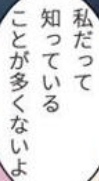 私だって
知っている
ことが多くないよ